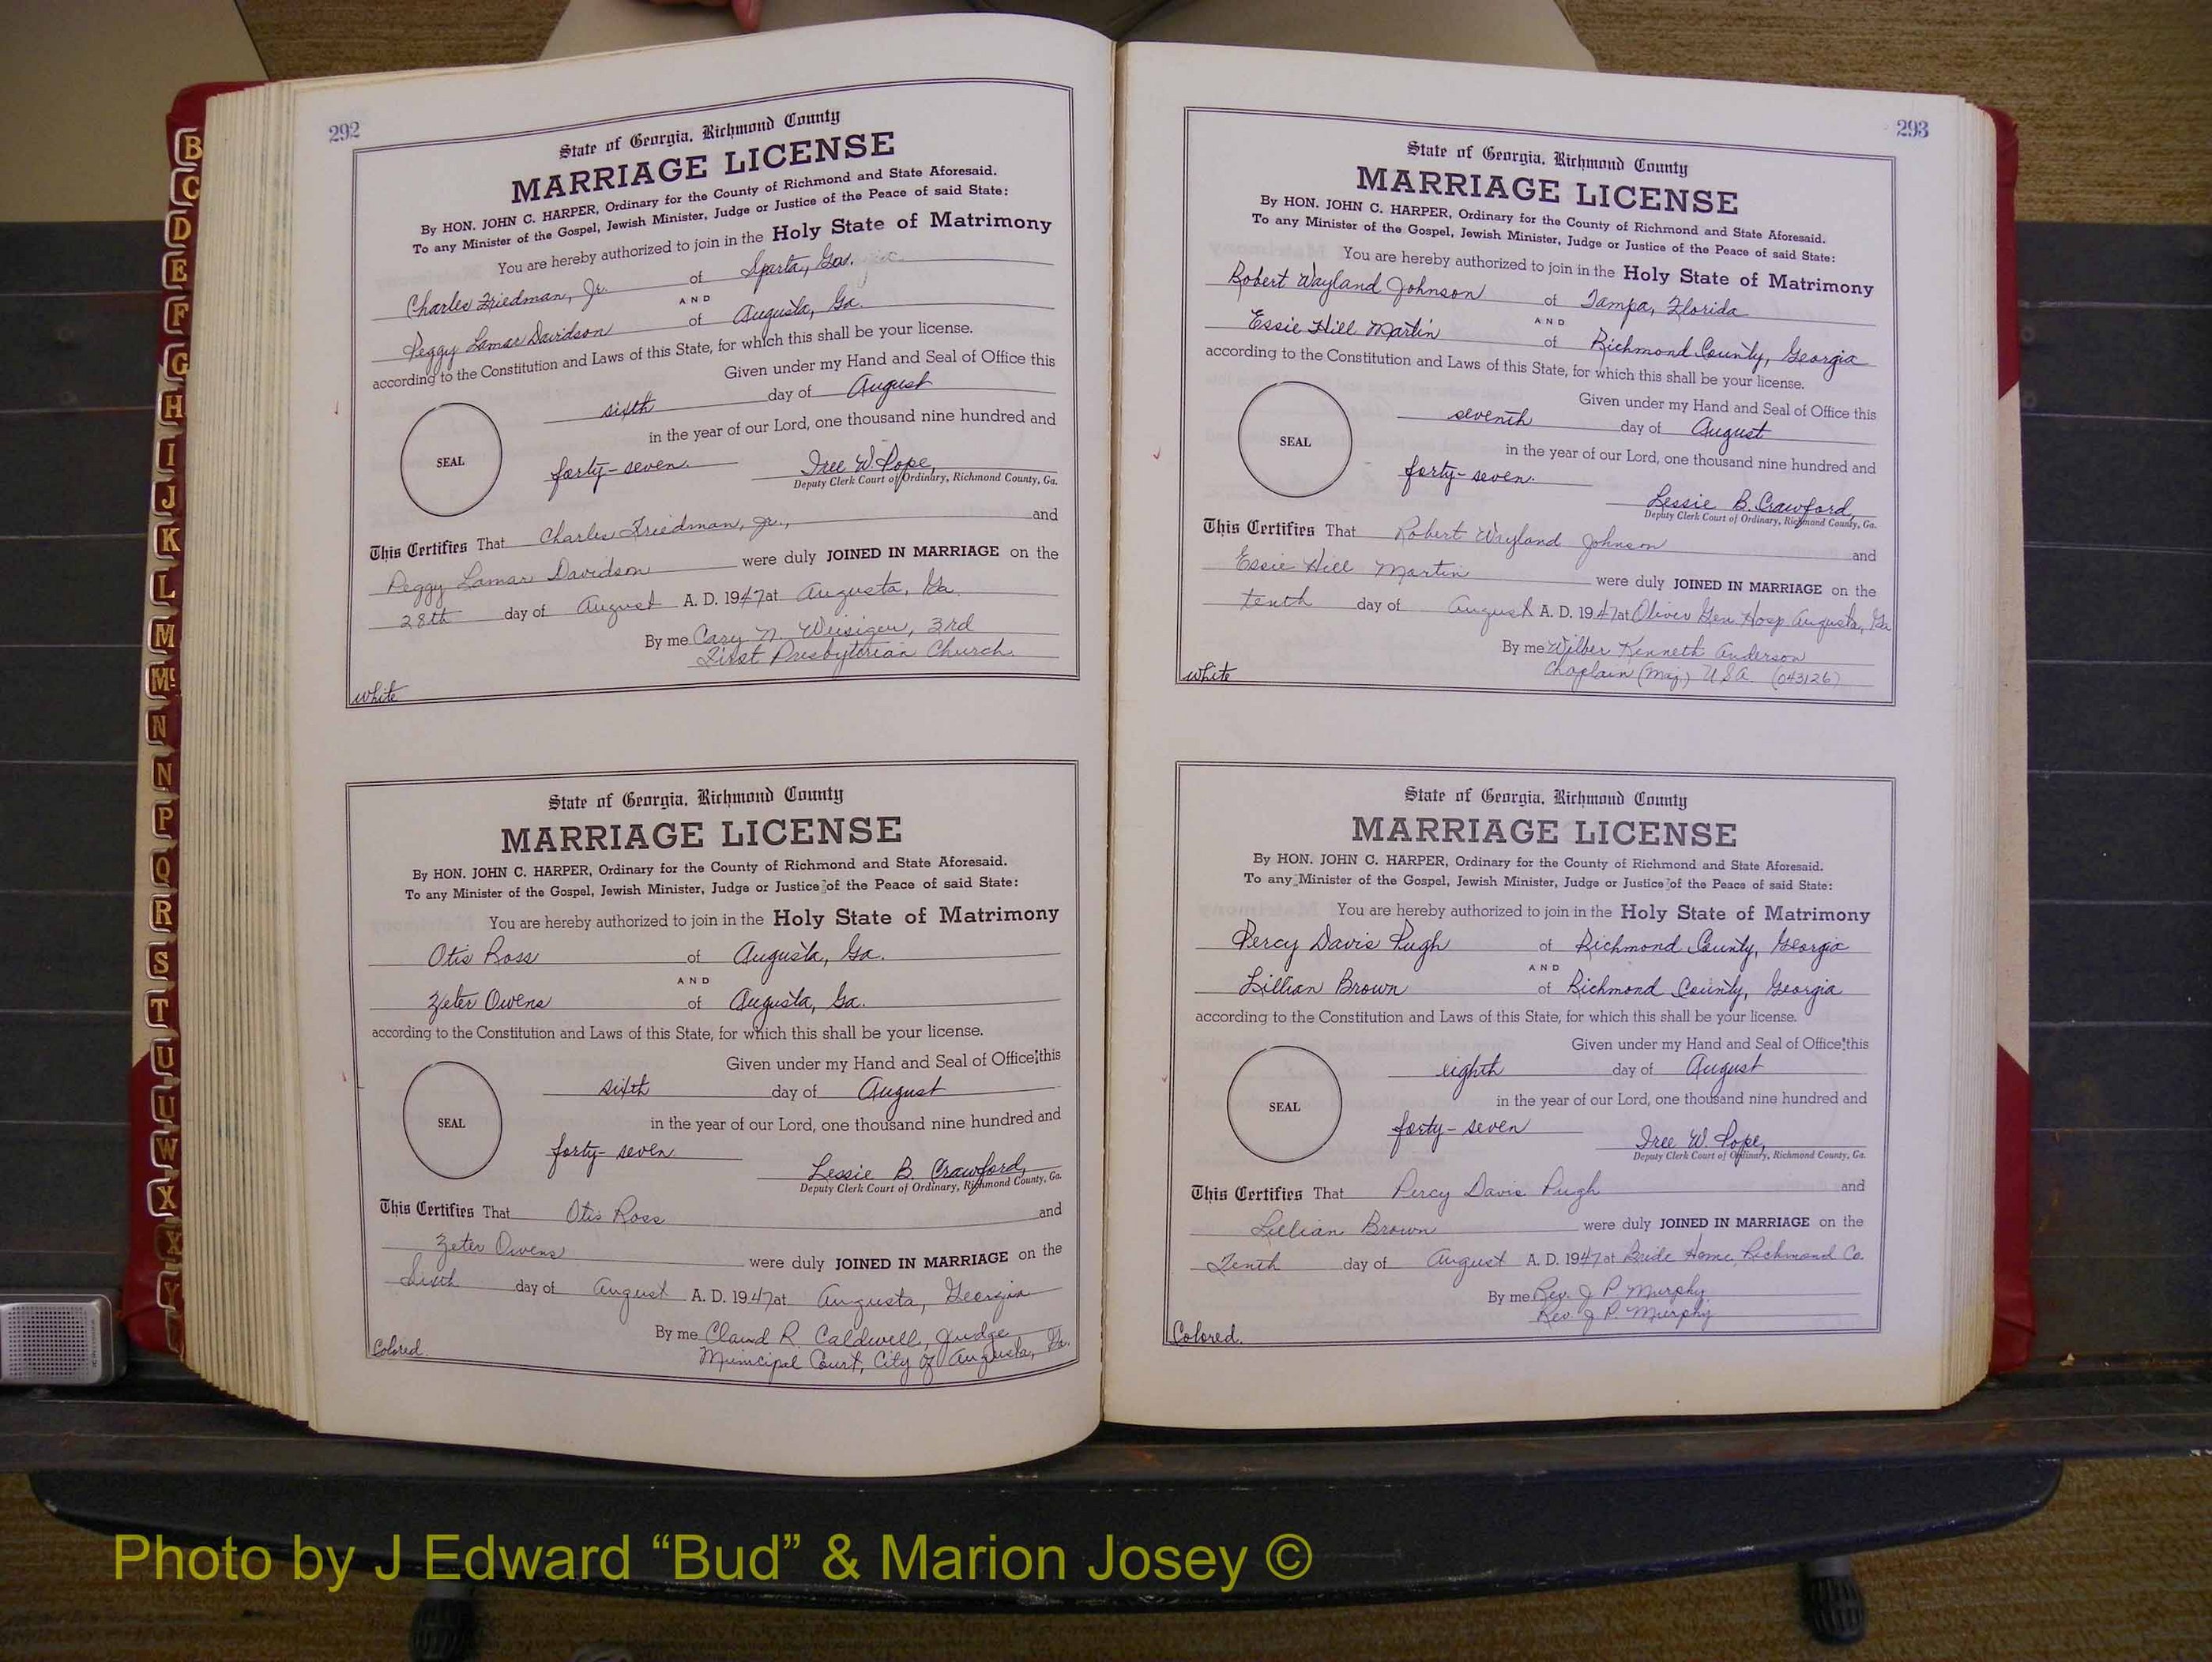 B
C
D
E
F
G
H
I
J
K
L
M
Mc
N
N
P
Q
R
S
T
U
U
W
X
X
Y
292
State of Georgia, Richmond County
MARRIAGE LICENSE
By HON. JOHN C. HARPER, Ordinary for the County of Richmond and State Aforesaid.
To any Minister of the Gospel, Jewish Minister, Judge or Justice of the Peace of said State:
You are hereby authorized to join in the Holy State of Matrimony
Charles Friedman, Jr. of Sparta, Ga.
AND
Peggy Lamar Davidson of Augusta, Ga.
according to the Constitution and Laws of this State, for which this shall be your license.
Given under my Hand and Seal of Office this
sixth day of August
in the year of our Lord, one thousand nine hundred and
SEAL
forty-seven. Iree W. Pope,
Deputy Clerk Court of Ordinary, Richmond County, Ga.
This Certifies That Charles Friedman, Jr., and
Peggy Lamar Davidson were duly JOINED IN MARRIAGE on the
28th day of August A. D. 1947 at Augusta, Ga.
By me Cary N. Weisiger, 3rd
First Presbyterian Church.
white
State of Georgia, Richmond County
MARRIAGE LICENSE
By HON. JOHN C. HARPER, Ordinary for the County of Richmond and State Aforesaid.
To any Minister of the Gospel, Jewish Minister, Judge or Justice of the Peace of said State:
You are hereby authorized to join in the Holy State of Matrimony
Otis Ross of Augusta, Ga.
AND
Zeter Owens of Augusta, Ga.
according to the Constitution and Laws of this State, for which this shall be your license.
Given under my Hand and Seal of Office this
sixth day of August
in the year of our Lord, one thousand nine hundred and
SEAL
forty-seven Lessie B. Crawford,
Deputy Clerk Court of Ordinary, Richmond County, Ga.
This Certifies That Otis Ross and
Zeter Owens were duly JOINED IN MARRIAGE on the
Sixth day of August A. D. 1947 at Augusta, Georgia
By me Claud R. Caldwell, Judge
Municipal Court, City of Augusta, Ga.
Colored.
293
State of Georgia, Richmond County
MARRIAGE LICENSE
By HON. JOHN C. HARPER, Ordinary for the County of Richmond and State Aforesaid.
To any Minister of the Gospel, Jewish Minister, Judge or Justice of the Peace of said State:
You are hereby authorized to join in the Holy State of Matrimony
Robert Wayland Johnson of Tampa, Florida
AND
Essie Hill Martin of Richmond County, Georgia
according to the Constitution and Laws of this State, for which this shall be your license.
Given under my Hand and Seal of Office this
seventh day of August
in the year of our Lord, one thousand nine hundred and
SEAL
forty-seven. Lessie B. Crawford,
Deputy Clerk Court of Ordinary, Richmond County, Ga.
This Certifies That Robert Wayland Johnson and
Essie Hill Martin were duly JOINED IN MARRIAGE on the
tenth day of August A. D. 1947 at Oliver Gen Hosp Augusta, Ga
By me Wilber Kenneth Anderson
Chaplain (Maj) U.S.A. (043126)
white
State of Georgia, Richmond County
MARRIAGE LICENSE
By HON. JOHN C. HARPER, Ordinary for the County of Richmond and State Aforesaid.
To any Minister of the Gospel, Jewish Minister, Judge or Justice of the Peace of said State:
You are hereby authorized to join in the Holy State of Matrimony
Percy Davis Pugh of Richmond County, Georgia
AND
Lillian Brown of Richmond County, Georgia
according to the Constitution and Laws of this State, for which this shall be your license.
Given under my Hand and Seal of Office this
eighth day of August
in the year of our Lord, one thousand nine hundred and
SEAL
forty-seven Iree W. Pope,
Deputy Clerk Court of Ordinary, Richmond County, Ga.
This Certifies That Percy Davis Pugh and
Lillian Brown were duly JOINED IN MARRIAGE on the
Tenth day of August A. D. 1947 at Bride Home, Richmond Co.
By me Rev. J. P. Murphy.
Rev. J. P. Murphy.
Colored.
Photo by J Edward “Bud” & Marion Josey ©